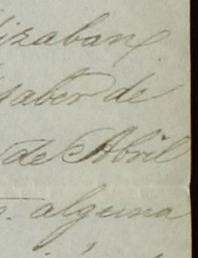 izaban
saber de
de Abril
alguna